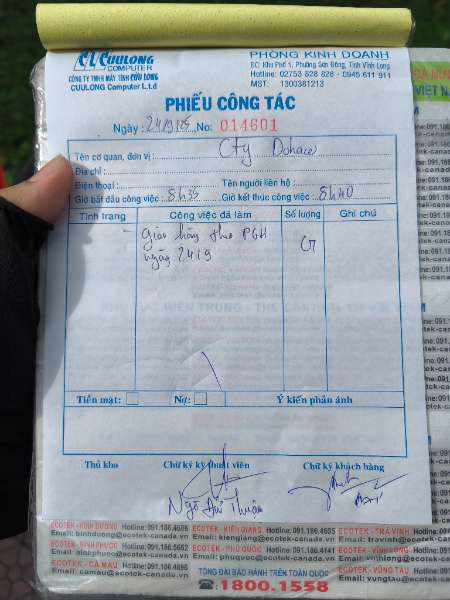 CUULONG
COMPUTER
CÔNG TY TNHH MÁY TÍNH CỬU LONG
CUULONG Computer L.t.d
PHÒNG KINH DOANH
ĐC: Khu Phố 1, Phường Sơn Đông, Tỉnh Vĩnh Long
Hotline: 02753 828 828 - 0945 611 911
MST: 1300381213
PHIẾU CÔNG TÁC
Ngày: 24/9/25 No: 014601
Tên cơ quan, đơn vị: Cty Dohaco
Địa chỉ:
Điện thoại: Tên người liên hệ:
Giờ bắt đầu công việc: 8h35 Giờ kết thúc công việc: 8h40
Tình trạng Công việc đã làm Số lượng Ghi chú
- Giao hàng theo PGH
ngày 24/9
Tiền mặt: Nợ: Ý kiến phản ánh
Thủ kho Chữ ký kỹ thuật viên Chữ ký khách hàng
Ngô Đức Thuận
ECOTEK - BÌNH DƯƠNG Hotline: 091.186.4685 ECOTEK - KIÊN GIANG Hotline: 091.186.4685 ECOTEK - TRÀ VINH Hotline: 091
Email: binhduong@ecotek-canada.vn Email: kiengiang@ecotek-canada.vn Email: travinh@ecotek-canada
ECOTEK - BÌNH PHƯỚC Hotline: 091.186.5652 ECOTEK - PHÚ QUỐC Hotline: 091.186.4141 ECOTEK - VĨNH LONG
Email: binhphuoc@ecotek-canada.vn Email: phuquoc@ecotek-canada.vn Email: vinhlong@ecotek
ECOTEK - CÀ MAU
Email: camau@ecotek-canada.vn
TỔNG ĐÀI BẢO HÀNH TRÊN TOÀN QUỐC
1800.1558
ECOTEK - VŨNG TÀU
Email: vungtau@ecotek-canada